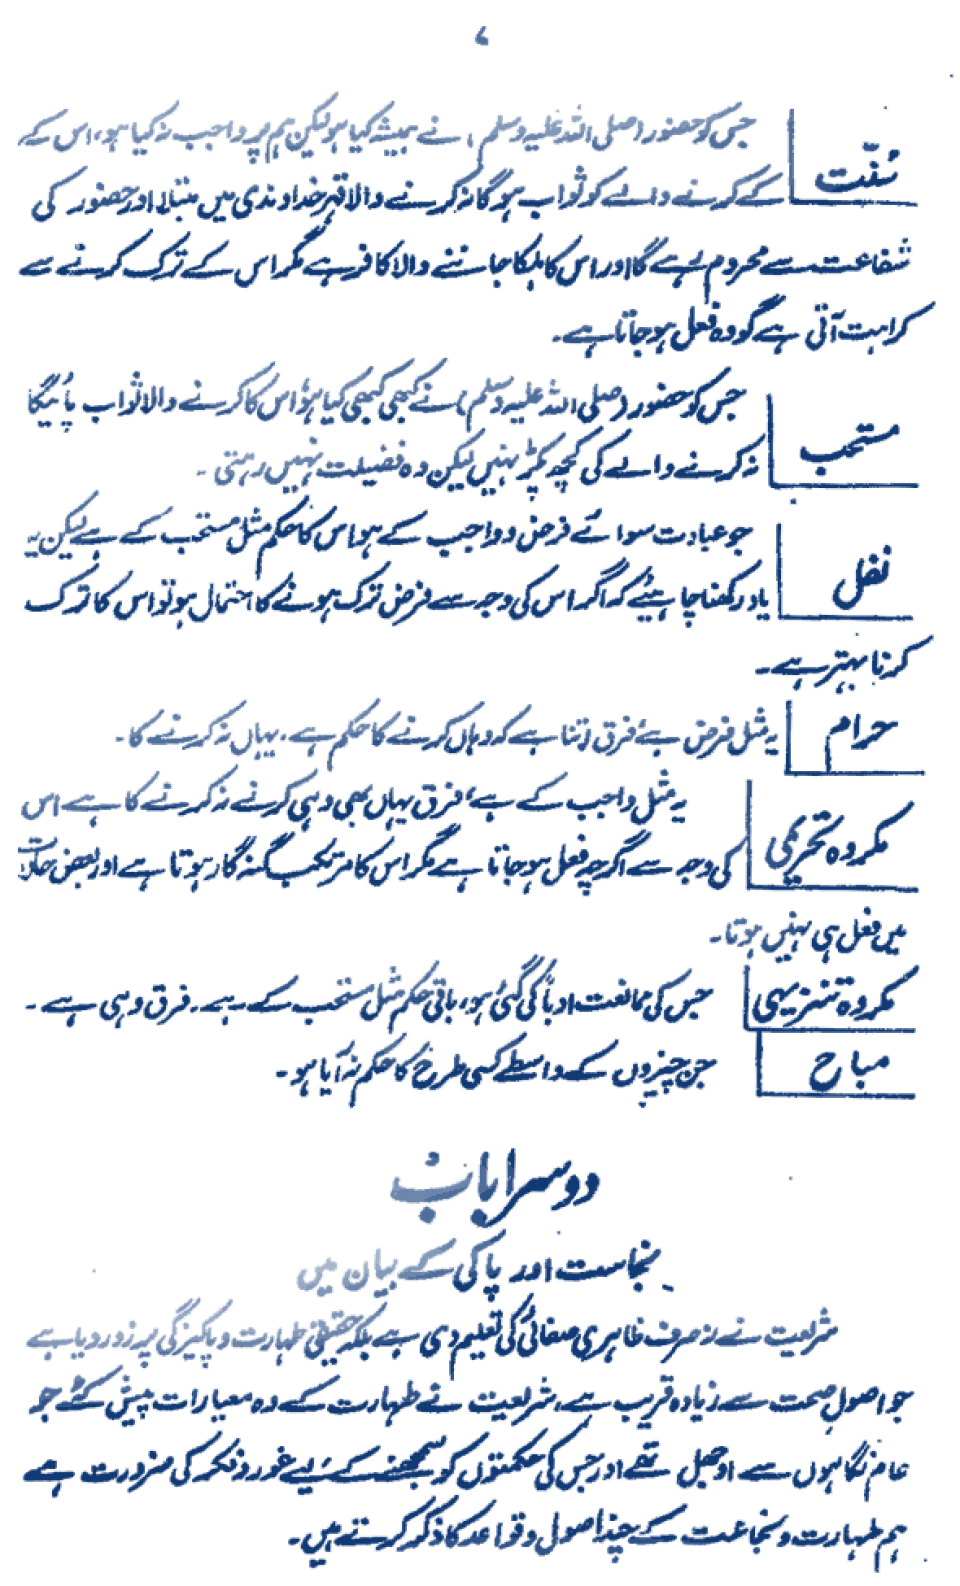 ۷
سُنّت
جس کو حضور (صلی اللہ علیہ وسلم) نے ہمیشہ کیا ہو لیکن ہم پر واجب نہ کیا ہو، اس کے
کے کرنے والے کو ثواب ہوگا نہ کرنے والا قہرِ خداوندی میں مبتلا اور حضور کی
شفاعت سے محروم رہے گا اور اس کا ہلکا جاننے والا کافر ہے مگر اس کے ترک کرنے سے
کراہت آتی ہے گو وہ فعل ہو جاتا ہے۔
مستحب
جس کو حضور (صلی اللہ علیہ وسلم) نے کبھی کبھی کیا ہو، اس کا کرنے والا ثواب پائیگا
نہ کرنے والے کی کچھ پکڑ نہیں لیکن وہ فضیلت نہیں رہتی۔
نفل
جو عبادت سوائے فرض و واجب کے ہو اس کا حکم مثل مستحب کے ہے لیکن یہ
یاد رکھنا چاہئیے کہ اگر اس کی وجہ سے فرض ترک ہونے کا احتمال ہو تو اس کا ترک
کرنا بہتر ہے۔
حرام
یہ مثل فرض ہے فرق اتنا ہے کہ وہاں کرنے کا حکم ہے، یہاں نہ کرنے کا۔
مکروہ تحریمی
یہ مثل واجب کے ہے، فرق یہاں بھی وہی کرنے نہ کرنے کا ہے اس
کی وجہ سے اگرچہ فعل ہو جاتا ہے مگر اس کا مرتکب گنہگار ہوتا ہے اور بعض حالات
میں فعل ہی نہیں ہوتا۔
مکروہ تنزیہی
جس کی ممانعت ادباً کی گئی ہو، باقی حکم مثل مستحب کے ہے۔ فرق وہی ہے۔
مباح
جن چیزوں کے واسطے کسی طرح کا حکم نہ آیا ہو۔
دوسرا باب
نجاست اور پاکی کے بیان میں
شریعت نے نہ صرف ظاہری صفائی کی تعلیم دی ہے بلکہ حقیقی طہارت و پاکیزگی پر زور دیا ہے
جو اصولِ صحت سے زیادہ قریب ہے، شریعت نے طہارت کے وہ معیارات پیش کئے جو
عام نگاہوں سے اوجھل تھے اور جس کی حکمتوں کو سمجھنے کے لیے غور و فکر کی ضرورت ہے
ہم طہارت و نجاعت کے چند اصول و قواعد کا ذکر کرتے ہیں۔